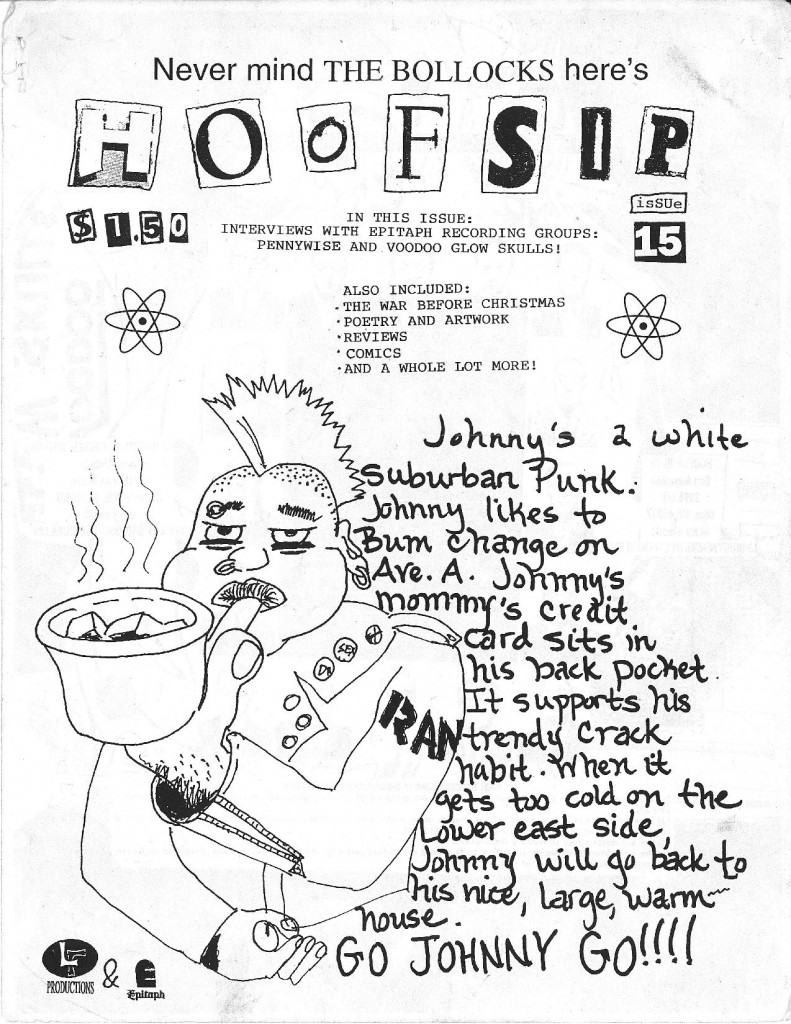 Never mind THE BOLLOCKS here's
HOoFSIP
$1.50
isSUe
15
IN THIS ISSUE:
INTERVIEWS WITH EPITAPH RECORDING GROUPS:
PENNYWISE AND VOODOO GLOW SKULLS!
ALSO INCLUDED:
·THE WAR BEFORE CHRISTMAS
·POETRY AND ARTWORK
·REVIEWS
·COMICS
·AND A WHOLE LOT MORE!
Johnny's a white
Suburban Punk.
Johnny likes to
Bum change on
Ave. A. Johnny's
mommy's credit
card sits in
his back pocket.
It supports his
trendy crack
habit. When it
gets too cold on the
Lower east side,
Johnny will go back to
his nice, large, warm
house.
GO JOHNNY GO!!!!
SEX
RAN
PRODUCTIONS
&
E
Epitaph